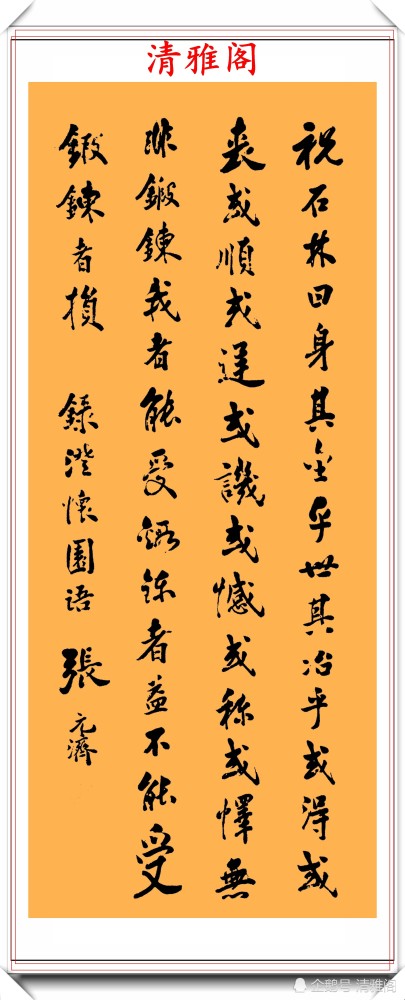 清雅阁
祝石林曰身其金乎世其冶乎或得或
丧或順或逆或譏或憾或称或懌無
非鍛鍊我者能受鍛鍊者益不能受
鍛鍊者損 錄澄懷園语 張元濟
企鹅号 清雅阁